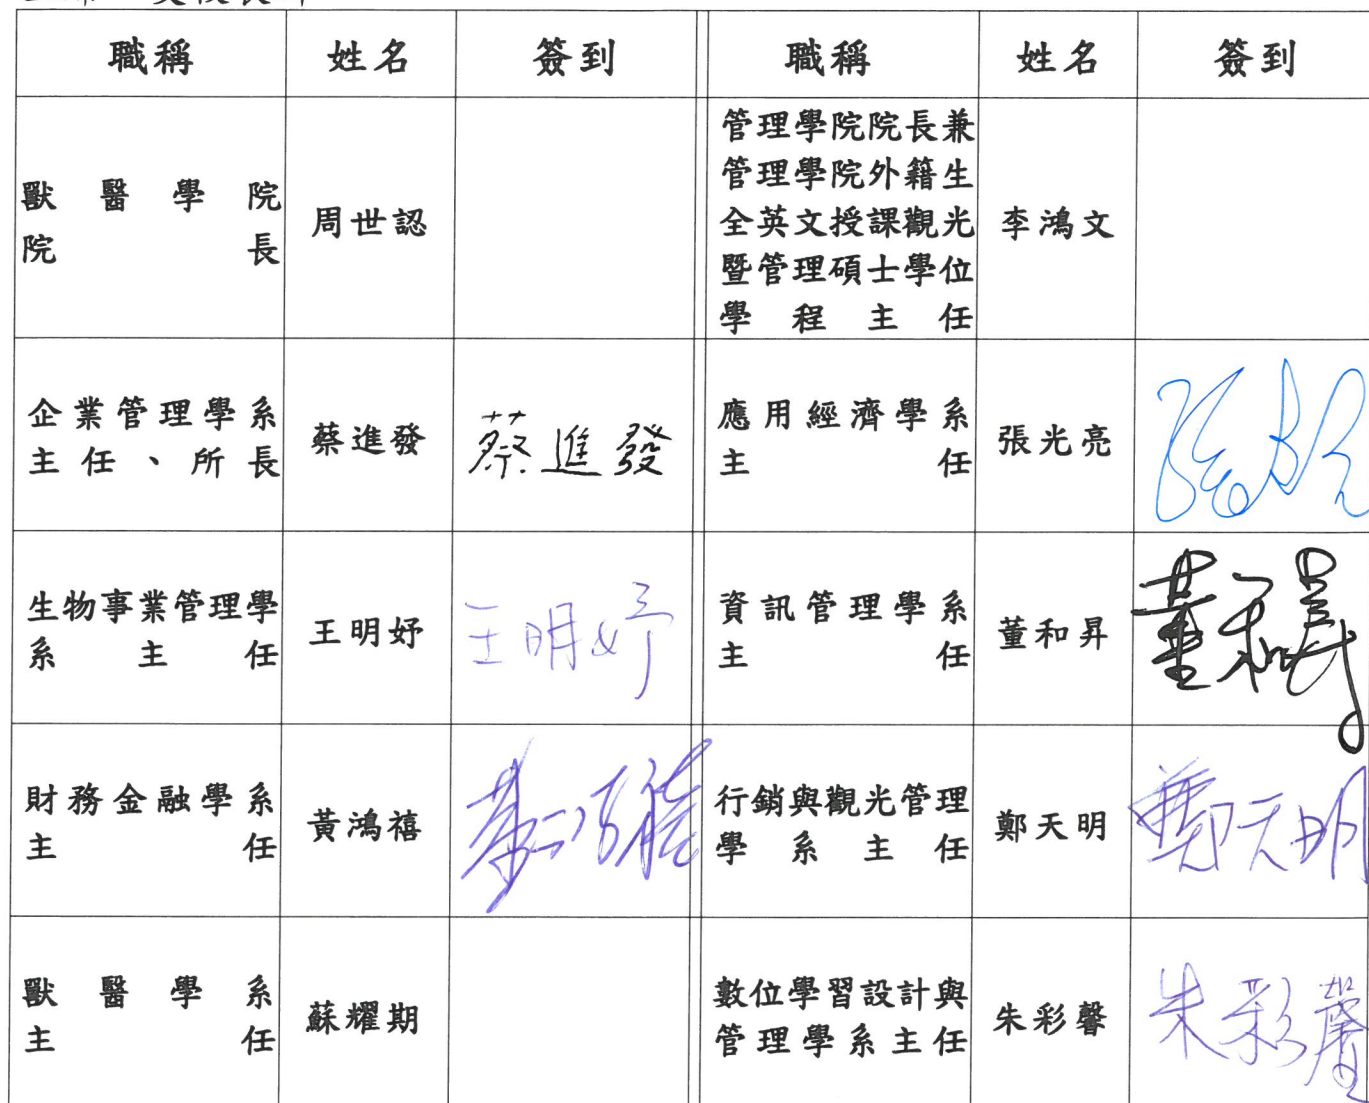 職稱 姓名 簽到 職稱 姓名 簽到
獸醫學院
院長
周世認
管理學院院長兼
管理學院外籍生
全英文授課觀光
暨管理碩士學位
學程主任
李鴻文
企業管理學系
主任、所長
蔡進發
蔡進發
應用經濟學系
主任
張光亮
生物事業管理學
系主任
王明妤
王明妤
資訊管理學系
主任
董和昇
董和昇
財務金融學系
主任
黃鴻禧
行銷與觀光管理
學系主任
鄭天明
鄭天明
獸醫學系
主任
蘇耀期
數位學習設計與
管理學系主任
朱彩馨
朱彩馨